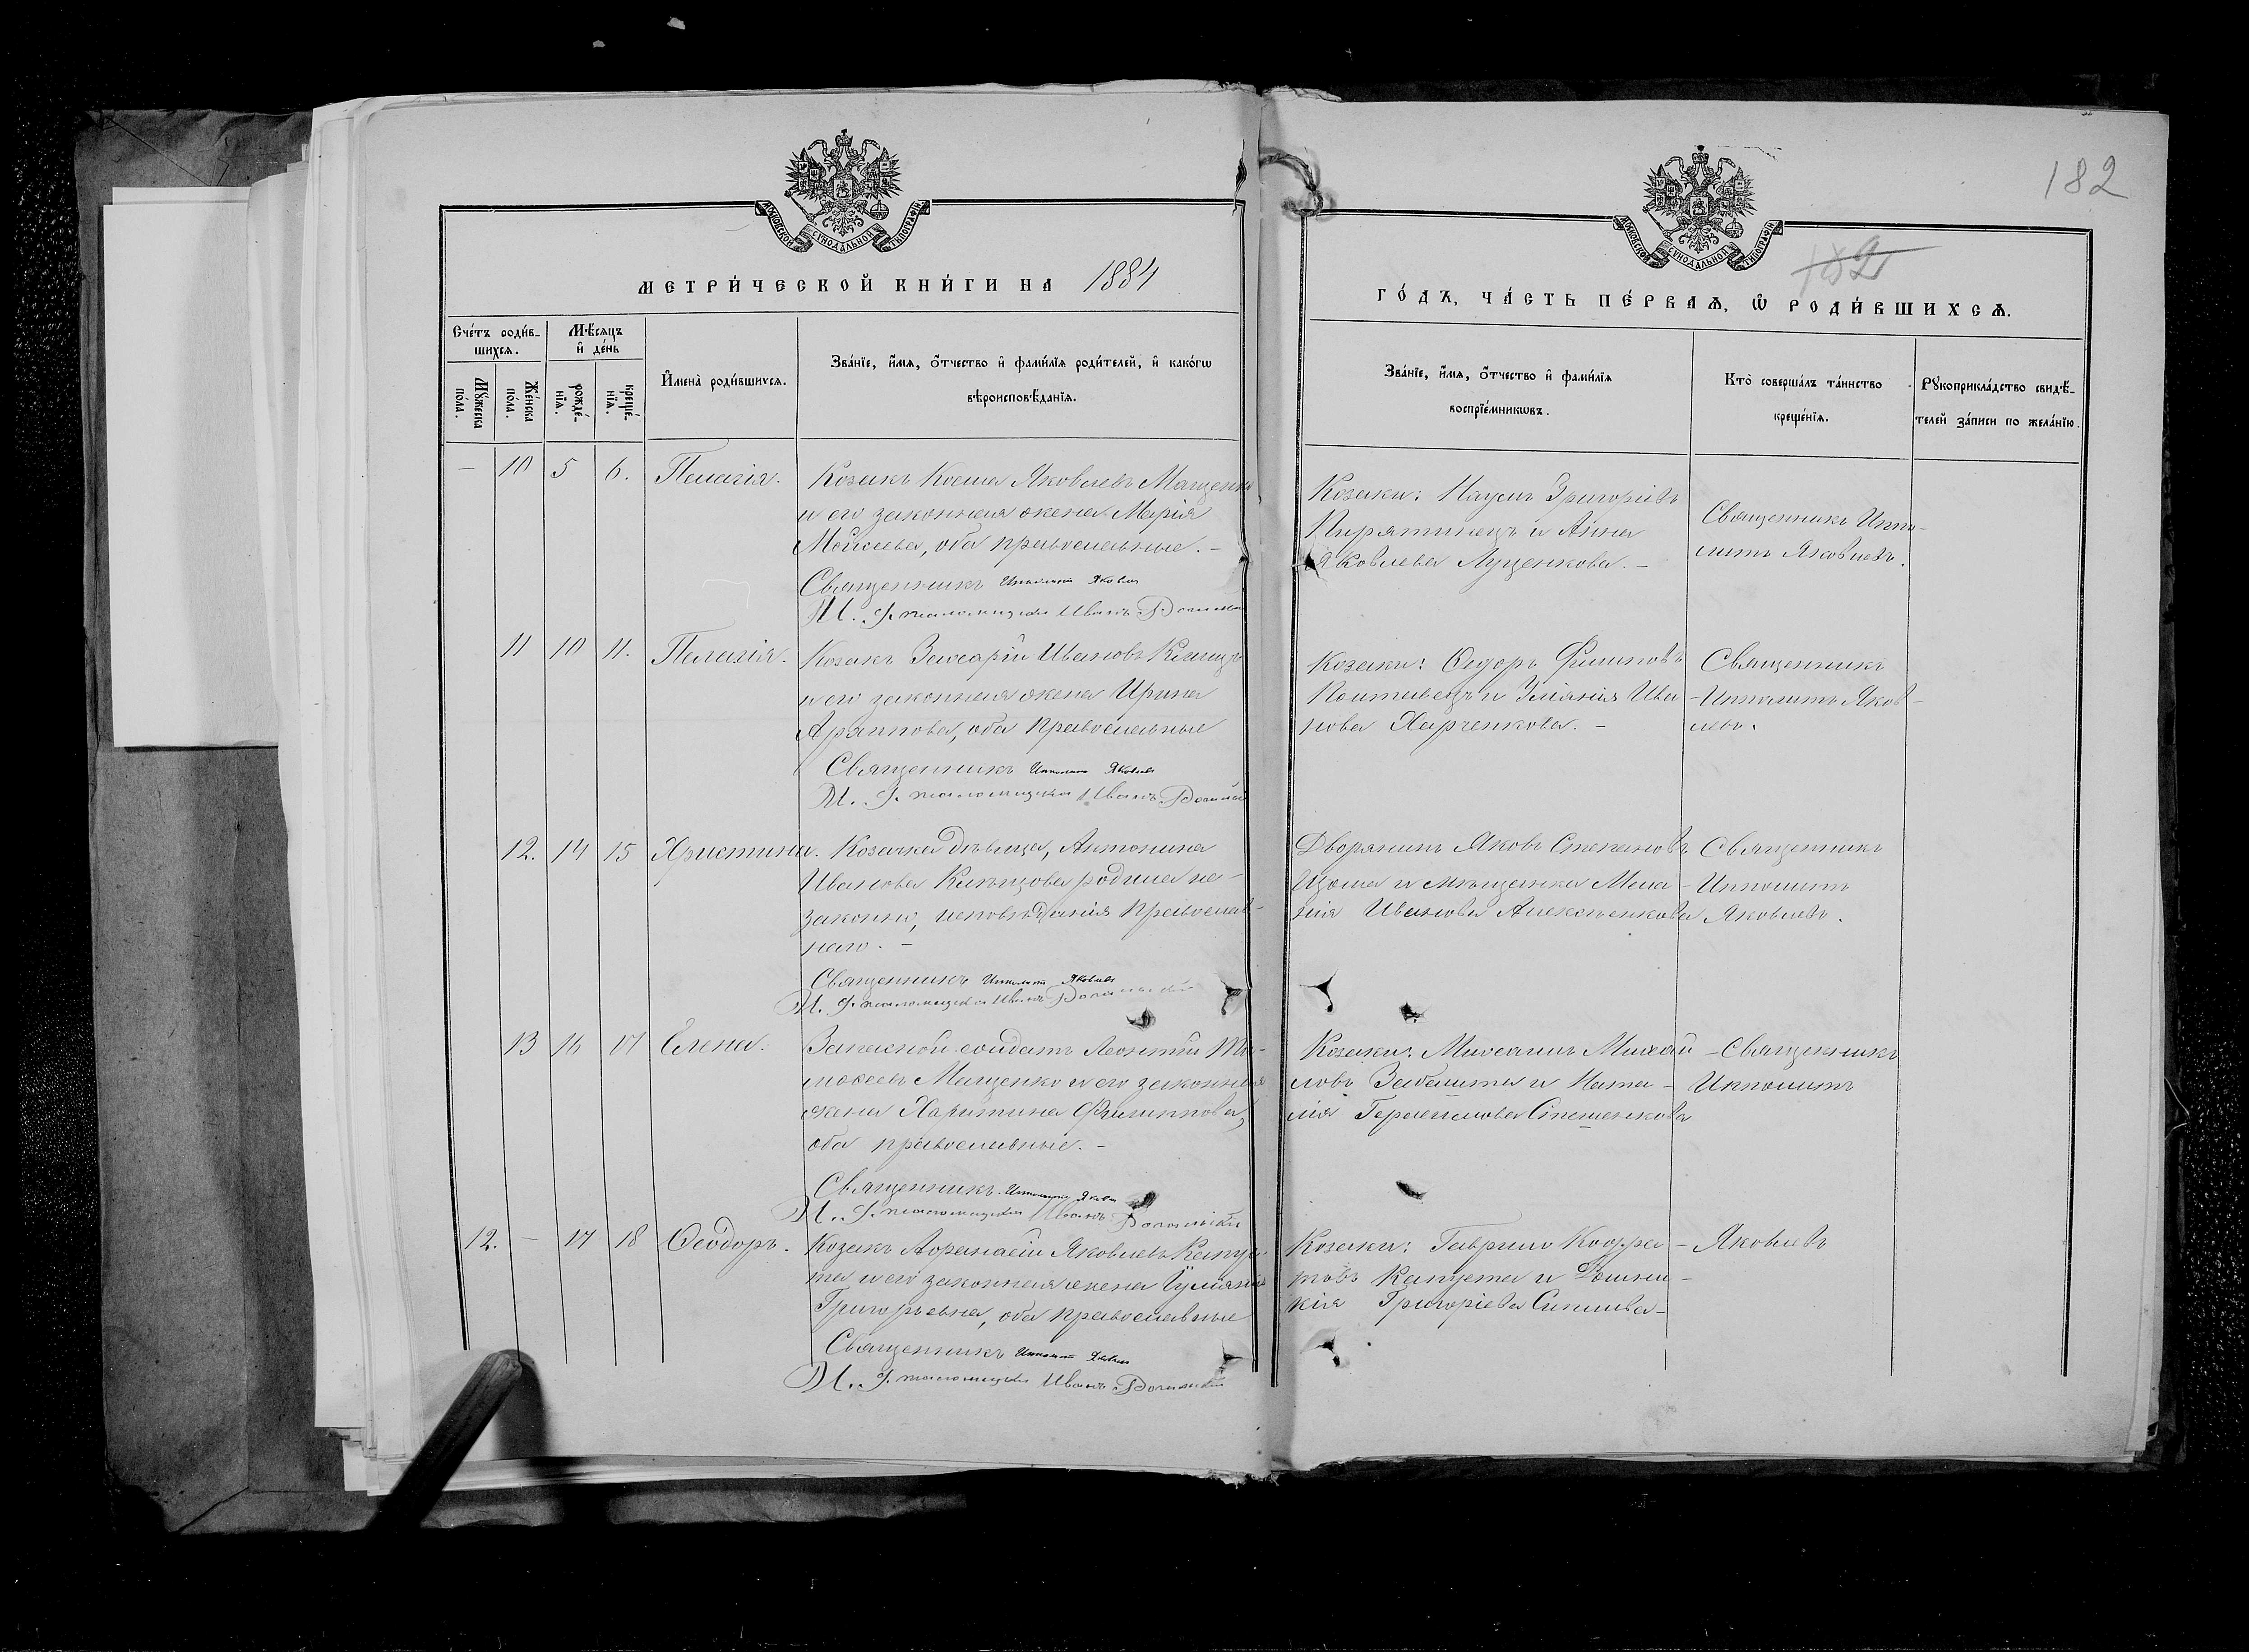 182
МОСКОВСКОЙ СѴНОДАЛЬНОЙ ТИПОГРАФІИ
МОСКОВСКОЙ СѴНОДАЛЬНОЙ ТИПОГРАФІИ
182
МЕТРИ́ЧЕСКОЙ КНИ́ГИ НА 1884
ГО́ДЪ, ЧА́СТЬ ПЕ́РВАѦ, Ѿ РОДИ́ВШИХСѦ.
Сче́тъ роди́в-
шихсѧ.
Мѣ́сѧцъ
и҆ де́нь
Мꙋ́жеска по́ла.
Же́нска по́ла.
рожде́-нїѧ.
креще́-нїѧ.
И҆мена̀ роди́вшихсѧ.
Зва́нїе, и҆́мѧ, ѻ҆́тчество и҆ фами́лїѧ роди́телей, и҆ како́гѡ
вѣроисповѣ́данїѧ.
Зва́нїе, и҆́мѧ, ѻ҆́тчество и҆ фами́лїѧ
воспрїе́мникѡвъ.
Кто̀ соверша́лъ та́инство
креще́нїѧ.
Рꙋкоприкла́дство свидѣ́-
телей за́писи по жела́нїю.
— 10 5 6. Пелагія.
Козакъ Косма Яковлевъ Мащенко
и его законная жена Марія
Моисеева, оба православные. —
Священникъ Ипполитъ Яковлев
И. д. псаломщика Иванъ
Козаки: Наумъ Григоріевъ
Пирятинецъ и Анна
Яковлева Луценкова. —
Священникъ Иппо-
литъ Яковлевъ.
11 10 11. Пелагія.
Козакъ Захарій Ивановъ
и его законная жена Ирина
оба православные
Священникъ Ипполитъ Яковлев
И. д. псаломщика Иванъ
Козаки: Ѳедоръ Филиповъ
Полтавецъ и Уліянія Ива
нова Харченкова. —
Священникъ
Ипполитъ Яков-
левъ.
12. 14 15 Христина.
Козачка дѣвица, Антонина
Иванова родила не-
законно, исповѣданія православ-
наго. —
Священникъ Ипполитъ Яковлев
И. д. псаломщика Иванъ
Дворянинъ Яковъ Степановъ
и мѣщанка Мела-
нія Иванова Алексѣенкова
Священникъ
Ипполитъ
Яковлевъ.
13 16 17 Елена.
Запасной солдатъ Леонтій Ти-
моѳеевъ Мащенко и его законная
жена Харитина Филиппова,
оба православные. —
Священникъ Ипполитъ Яковлев
И. д. псаломщика Иванъ
Козаки: Михаилъ Михай-
ловъ и Ната-
лія Герасимова Стешенкова
Священникъ
Ипполитъ
12. — 17 18 Ѳеодоръ.
Козакъ Аѳанасій Яковлевъ Капус-
та и его законная жена Іуліянія
Григорьевна, оба православные
Священникъ Ипполитъ Яковлев
И. д. псаломщика Иванъ
Козаки: Гавріилъ Кондра-
товъ Капуста и Домни-
кія Григоріева
Яковлевъ